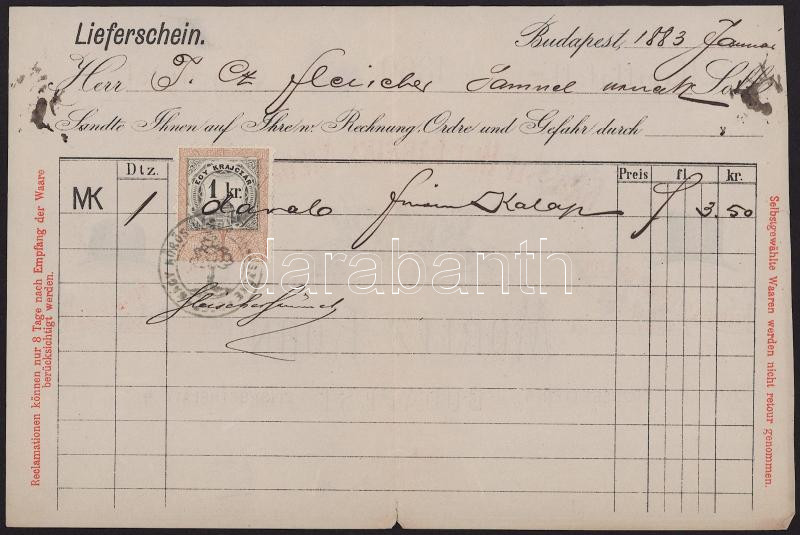 Lieferschein.
Budapest, 1883 Januar
Herr T. Cz. Fleischer Samuel
Sandte Ihnen auf Ihre w. Rechnung, Ordre und Gefahr durch
Dtz. Preis fl. kr.
EGY KRAJCZÁR
1 kr.
MK 1 darab finom Kalap f 3.50
Fleischer Sámuel
darabanth
Reclamationen können nur 8 Tage nach Empfang der Waare
berücksichtigt werden.
Selbstgewählte Waaren werden nicht retour genommen.